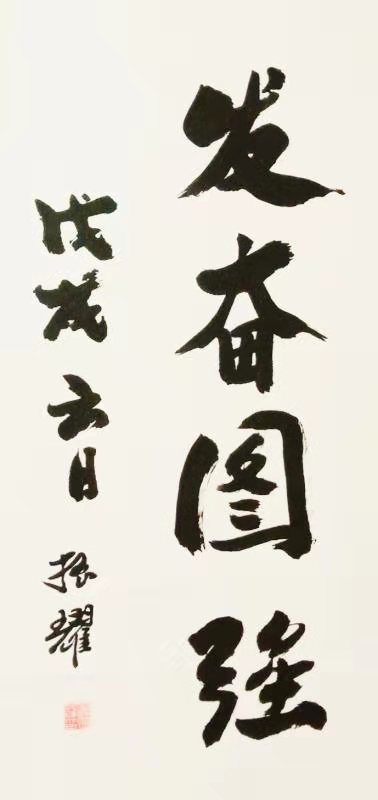 发奋图强
戊戌六月
振耀